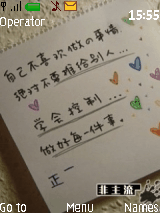 08:02
15:55
Operator
自己不喜欢做の事情
绝对不要推给别人...
学会控制...
做好每一件事。
正一
非主流
Go to
Menu
Names